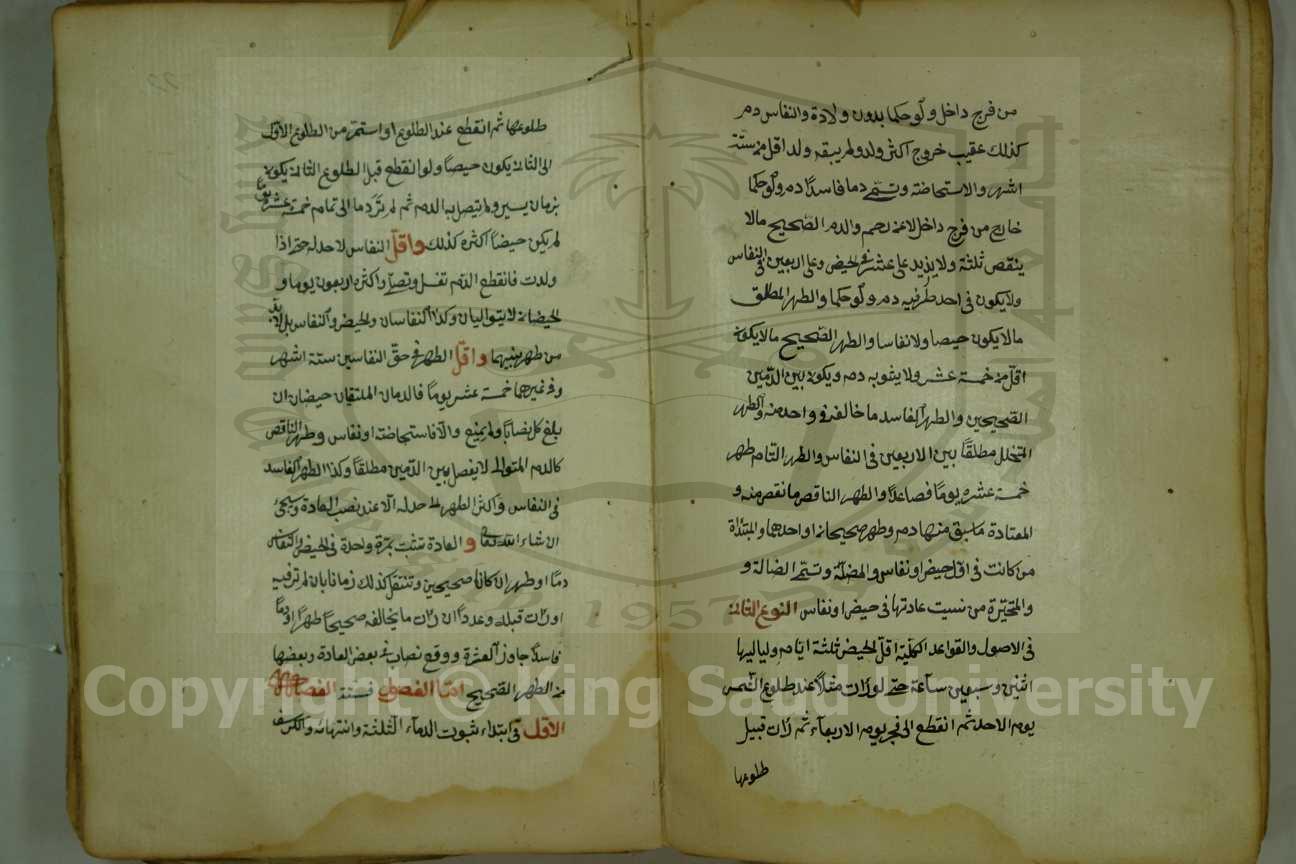 من فرج داخل ولو حكما بدون ولادة والنفاس دم
كذلك عقيب خروج اكثر ولد ولم يسبقه ولد اقل من ستة
اشهر والاستحاضة وتسمى دما فاسدا دم ولو حكما
خارج من فرج داخل لا عن رحم والدم الصحيح مالا
ينقص ثلثة ولا يزيد على عشر في الحيض وعلى اربعين في النفاس
ولا يكون في احد طرفيه دم ولو حكما والطهر المطلق
مالا يكون حيضا ولا نفاسا والطهر الصحيح مالا يكون
اقل من خمسة عشر ولا يشوبه دم ويكون بين الدمين
الصحيحين والطهر الفاسد ما خالفه في واحد منه والطهر
المتخلل مطلقا بين الاربعين في النفاس والطهر التام طهر
خمسة عشر يوما فصاعدا والطهر الناقص ما نقص منه و
المعتادة ما سبق منها دم وطهر صحيحان او احدهما والمبتدأة
من كانت في اول حيض او نفاس والمضلة وتسمى الضالة و
والمتحيرة من نسيت عادتها في حيض او نفاس النوع الثاني
في الاصول والقواعد الكلية اقل الحيض ثلثة ايام ولياليها
اثنين وسبعين ساعة حتى لو رأت مثلا عند طلوع الشمس
يوم الاحد ثم انقطع الى فجر يوم الاربعاء ثم رأت قبيل
طلوعها
طلوعها ثم انقطع عند الطلوع او استمر من الطلوع الاول
الى الثاني يكون حيضا ولو انقطع قبل الطلوع الثاني يكون
بزمان يسير ولم يتصل به الدم ثم لم تر دما الى تمام خمسة عشر يوما
لم يكن حيضا اكثره كذلك واقل النفاس لا حد له حتى اذا
ولدت فانقطع الدم تغسل وتصلي واكثره اربعون يوما و
الحيضان لا يتواليان وكذا النفاسان والحيض والنفاس بل لا بد
من طهر بينهما واقل الطهر في حق النفاسين ستة اشهر
وفي غيرهما خمسة عشر يوما فالدمان الملتقيان حيضان ان
بلغ كل نصابا ولم يمنع والا فاستحاضة او نفاس وطهر الناقص
كالدم المتوالى لا يفصل بين الدمين مطلقا وكذا الطهر الفاسد
في النفاس واكثر الطهر لا حد له الا عند نصب العادة وسيجئ
ان شاء الله تعالى و العادة تثبت بمرة واحدة في الحيض والنفاس
دما او طهر ان كانا صحيحين وتنتقل كذلك زمانا بان لم تر فيه
او رأت قبله وعددا ان رأت ما يخالفه صحيحا طهرا او دما
فاسدا جاوز العشرة ووقع نصاب في بعض العادة وبعضها
من الطهر الصحيح اما الفصول فستة الفصل
الاول في ابتداء ثبوت الدماء الثلثة وانتهائه والكرسف
1957
Copyright © King Saud University